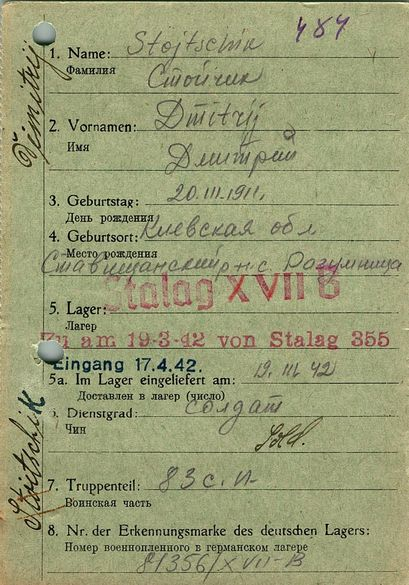 487
1. Name: Stojtschik
Фамилия Стойчик
2. Vornamen: Dmitrij
Имя Дмитрий
3. Geburtstag: 20.III.1911.
День рождения
4. Geburtsort: Киевская обл
Место рождения
Ставищанский р-н с Розумница
Stalag XVII B
5. Lager:
Лагер
Zu am 19-3-42 von Stalag 355
Eingang 17.4.42.
5a. Im Lager eingeliefert am: 19. III 42
Доставлен в лагер (число)
6. Dienstgrad: солдат
Чин Sold.
7. Truppenteil: 83 с.п.
Воинская часть
8. Nr. der Erkennungsmarke des deutschen Lagers:
Номер военнопленного в германском лагере
81356/XVII-B
Dimitrij
Stoitschik